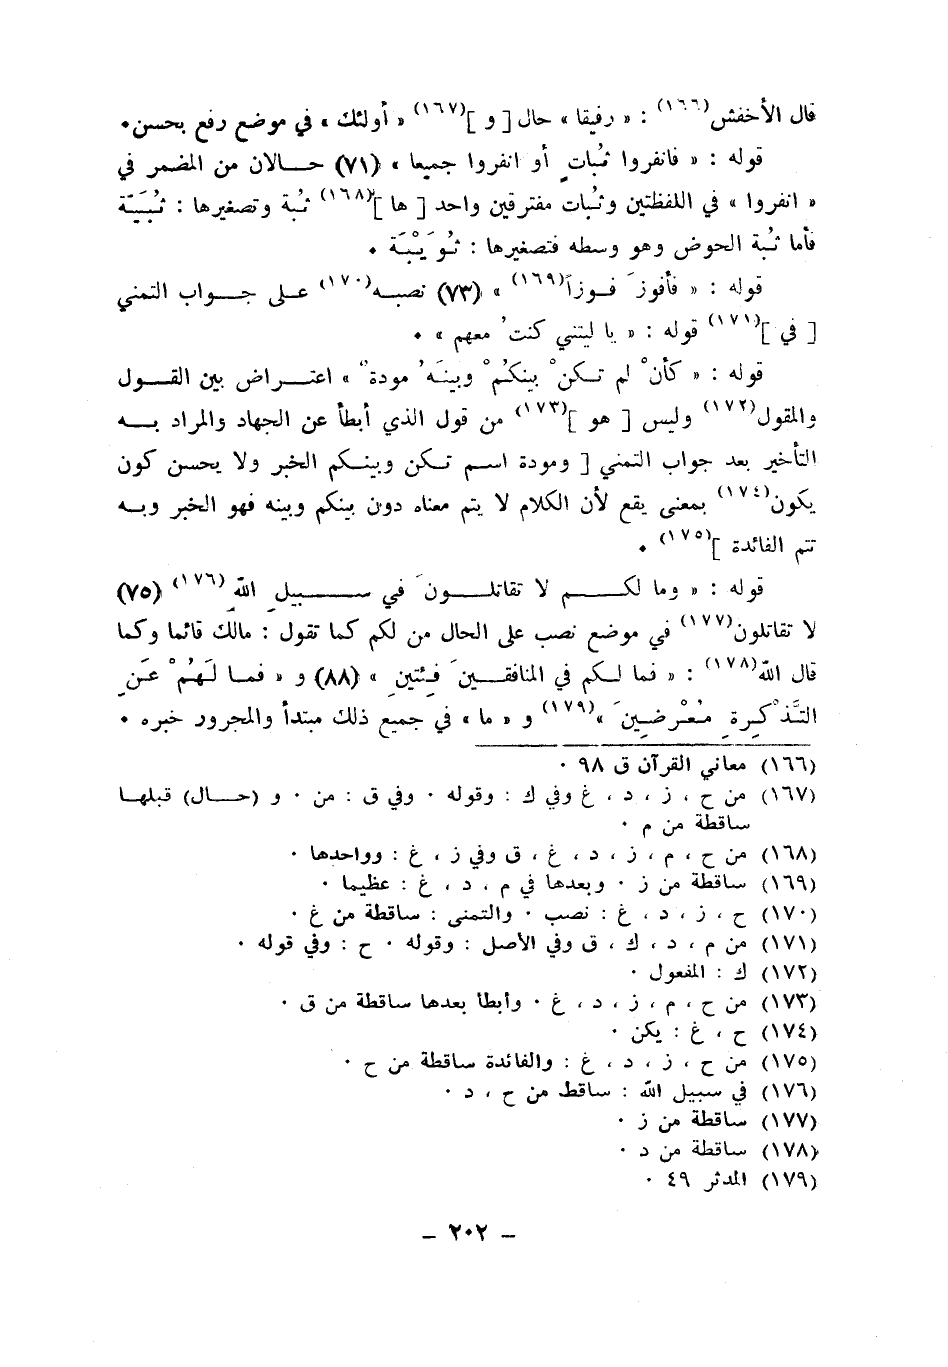 قال الأخفش(١٦٦) : « رفيقا » حال [ و ](١٦٧) « أولئك » في موضع رفع بحسن.
قوله : « فانفروا ثُباتٍ أو انفروا جميعا » (٧١) حالان من المضمر في
« انفروا » في اللفظتين وثُبات مفترقين واحد [ ها ](١٦٨) ثُبة وتصغيرها : ثُبَيَّة
فأما ثُبة الحوض وهو وسطه فتصغيرها : ثُوَيْبَة .
قوله : « فأفوزَ فوزاً(١٦٩) » (٧٣) نصبه(١٧٠) على جواب التمني
[ في ](١٧١) قوله : « يا ليتني كنتُ معهم » .
قوله : « كأنْ لم تكنْ بينكُمْ وبينَهُ مودةٌ » اعتراض بين القول
والمقول(١٧٢) وليس [ هو ](١٧٣) من قول الذي أبطأ عن الجهاد والمراد به
التأخير بعد جواب التمني [ ومودة اسم تكن وبينكم الخبر ولا يحسن كون
يكون(١٧٤) بمعنى يقع لأن الكلام لا يتم معناه دون بينكم وبينه فهو الخبر وبه
تتم الفائدة ](١٧٥) .
قوله : « وما لكم لا تقاتلونَ في سبيلِ اللّهِ(١٧٦) (٧٥)
لا تقاتلون(١٧٧) في موضع نصب على الحال من لكم كما تقول : مالك قائما وكما
قال اللّه(١٧٨) : « فما لكم في المنافقينَ فِئتينِ » (٨٨) و « فما لَهُمْ عَنِ
التَّذْكِرةِ مُعْرضِينَ »(١٧٩) و « ما » في جميع ذلك مبتدأ والمجرور خبره .
(١٦٦) معاني القرآن ق ٩٨ .
(١٦٧) من ح ، ز ، د ، غ وفي ك : وقوله . وفي ق : من . و (حال) قبلها
ساقطة من م .
(١٦٨) من ح ، م ، ز ، د ، غ ، ق وفي ز ، غ : وواحدها .
(١٦٩) ساقطة من ز . وبعدها في م ، د ، غ : عظيما .
(١٧٠) ح ، ز ، د ، غ : نصب . والتمنى : ساقطة من غ .
(١٧١) من م ، د ، ك ، ق وفي الأصل : وقوله . ح : وفي قوله .
(١٧٢) ك : المفعول .
(١٧٣) من ح ، م ، ز ، د ، غ . وأبطأ بعدها ساقطة من ق .
(١٧٤) ح ، غ : يكن .
(١٧٥) من ح ، ز ، د ، غ : والفائدة ساقطة من ح .
(١٧٦) في سبيل اللّه : ساقط من ح ، د .
(١٧٧) ساقطة من ز .
(١٧٨) ساقطة من د .
(١٧٩) المدثر ٤٩ .
– ٢٠٢ –